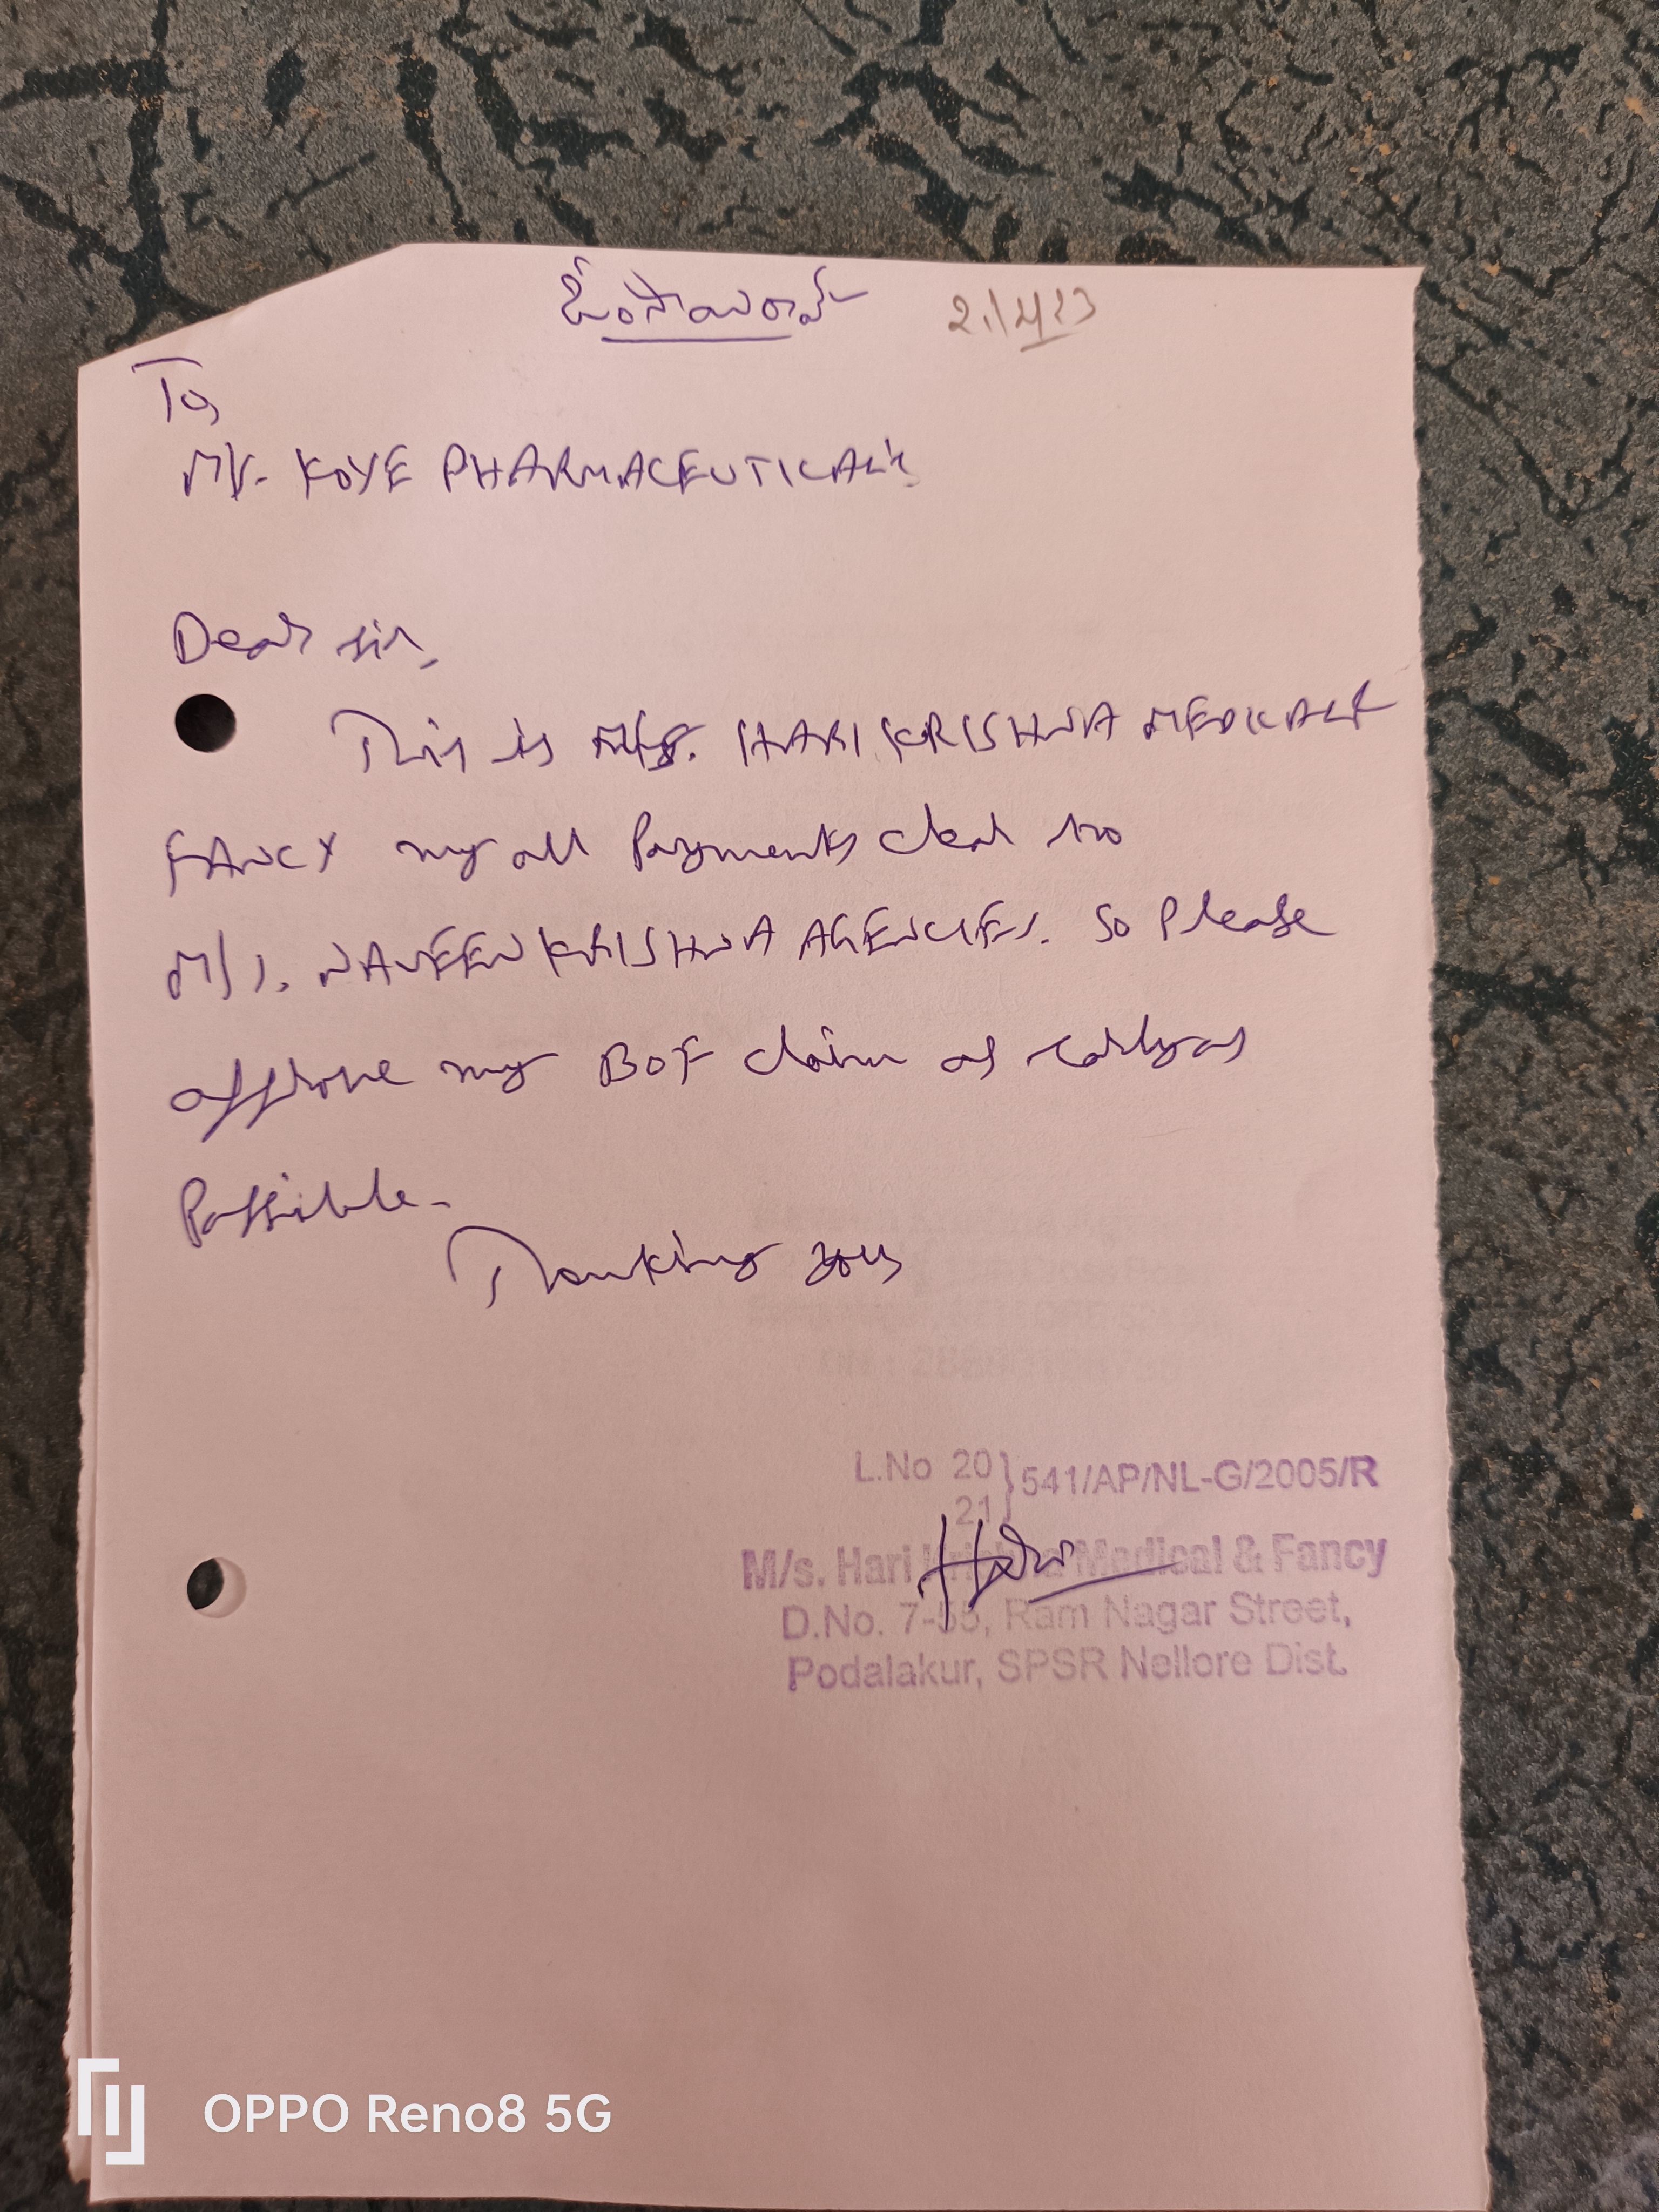 ఓం సాయిరామ్
To,
M/s. KOYE PHARMACEUTICAL's
Dear sir,
This is M/s. HARI KRISHNA MEDICAL &
FANCY my all Payments clear to
M/s. NAVEEN KRISHNA AGENCIES. So Please
approve my BOF claim as early as
Possible.
Thanking you
L.No 20 } 541/AP/NL-G/2005/R
21
M/s. Hari Krishna Medical & Fancy
Hari
D.No. 7-55, Ram Nagar Street,
Podalakur, SPSR Nellore Dist.
OPPO Reno8 5G